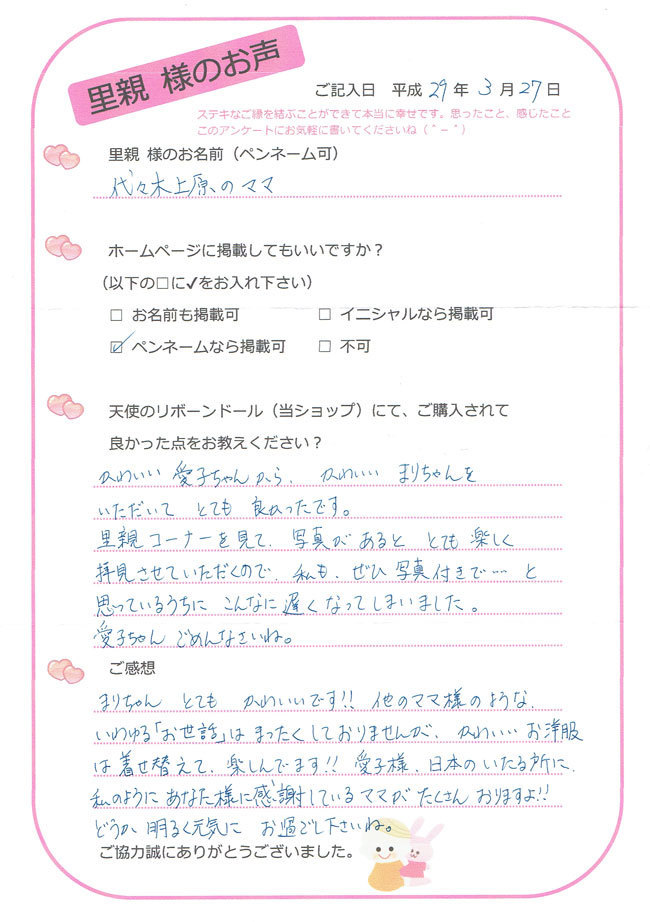 里親 様のお声
ご記入日 平成 29 年 3 月 27 日
ステキなご縁を結ぶことができて本当に幸せです。思ったこと、感じたこと
このアンケートにお気軽に書いてくださいね（＾－＾）
里親 様のお名前（ペンネーム可）
代々木上原のママ
ホームページに掲載してもいいですか？
（以下の□に✓をお入れ下さい）
□ お名前も掲載可 □ イニシャルなら掲載可
☑ ペンネームなら掲載可 □ 不可
天使のリボーンドール（当ショップ）にて、ご購入されて
良かった点をお教えください？
かわいい 愛子ちゃんから、 かわいい まりちゃんを
いただいて とても 良かったです。
里親コーナーを見て、写真があると とても 楽しく
拝見させていただくので、私も、ぜひ 写真付きで… と
思っているうちに こんなに 遅くなってしまいました。
愛子ちゃん ごめんなさいね。
ご感想
まりちゃん とても かわいいです!! 他のママ様のような、
いわゆる「お世話」は まったくしておりませんが、かわいい お洋服
は 着せ替えて、楽しんでます!! 愛子様、日本のいたる所に、
私のように あなた様に感謝しているママが たくさん おりますよ!!
どうか 明るく元気に お過ごし下さいね。
ご協力誠にありがとうございました。